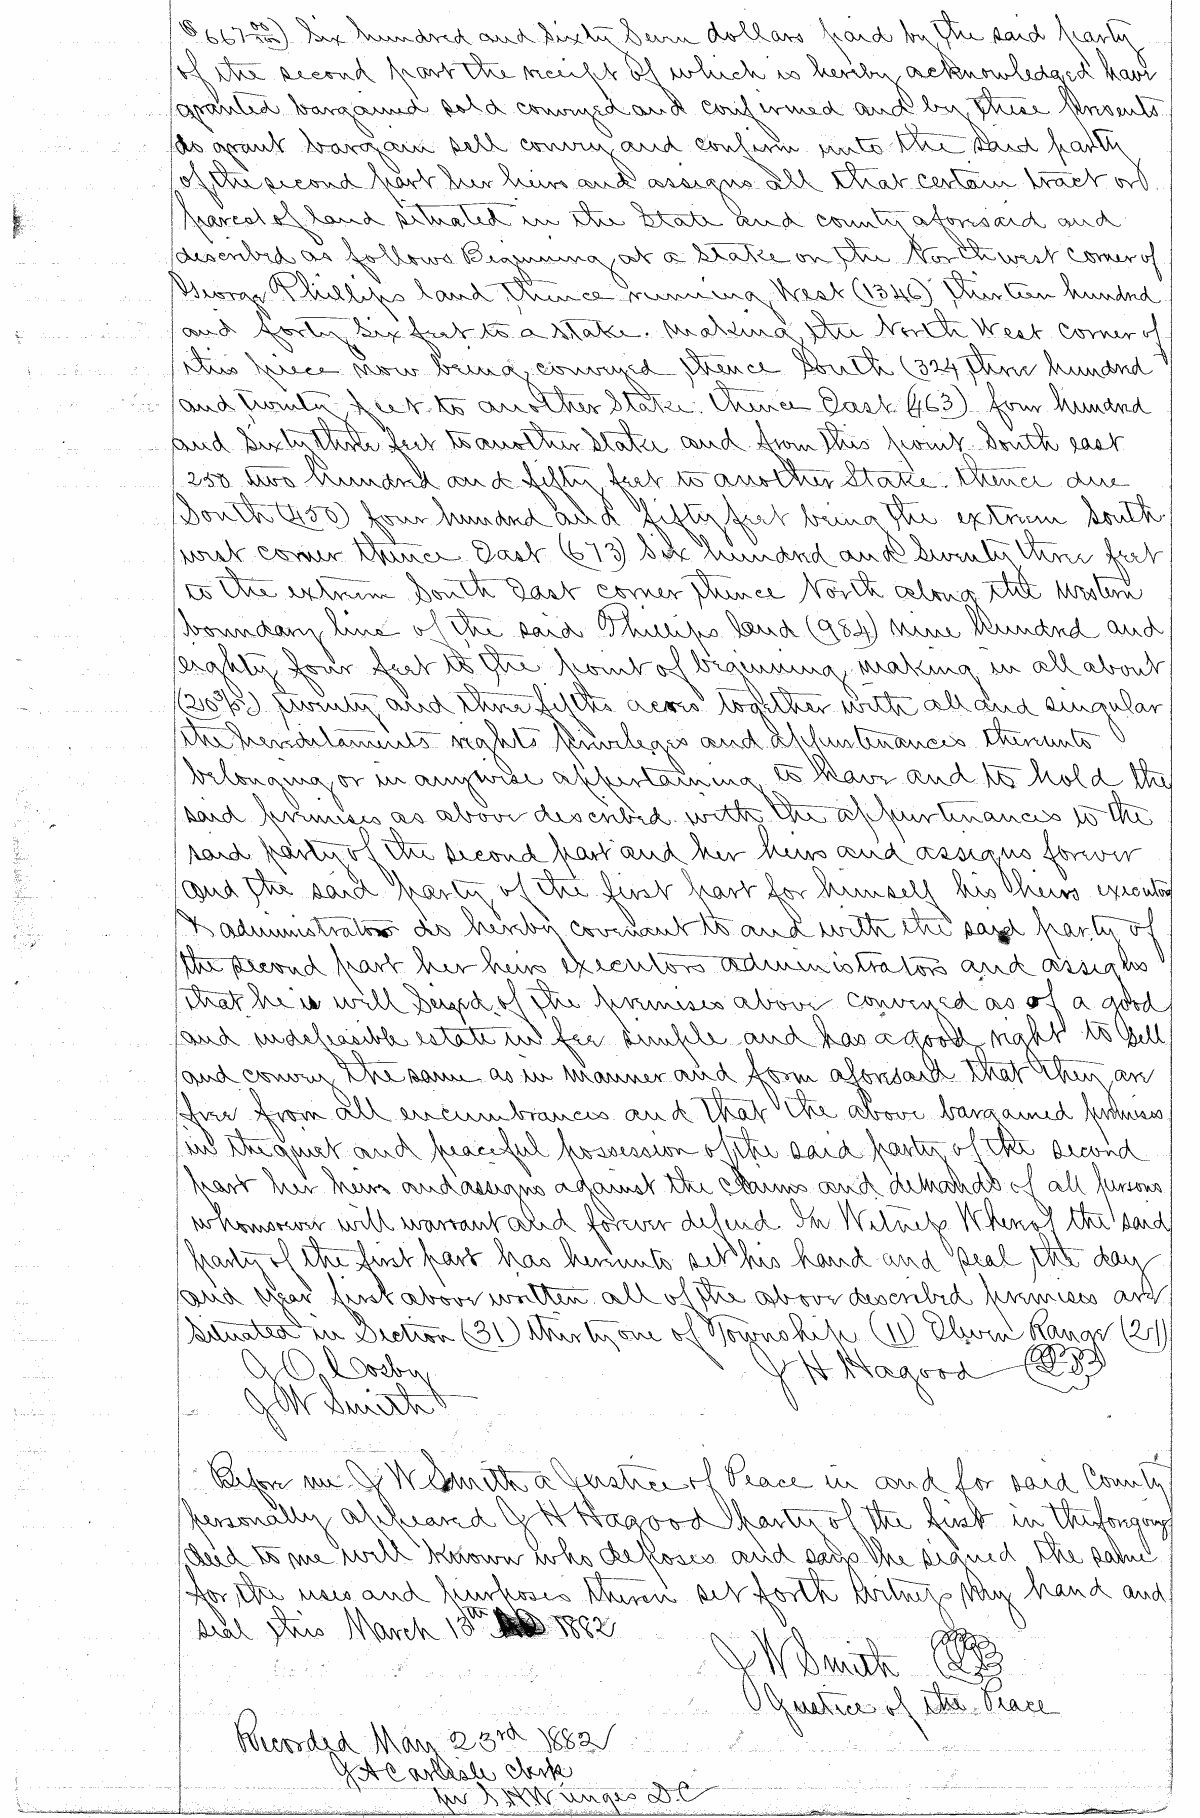 ($667 00/100) Six hundred and Sixty Seven dollars paid by the said party
of the second part the receipt of which is hereby acknowledged have
granted bargained sold conveyed and confirmed and by these presents
do grant bargain sell convey and confirm unto the said party
of the second part her heirs and assigns all that certain tract or
parcel of land situated in the State and county aforesaid and
described as follows Beginning at a Stake on the North west corner of
George Phillips land thence running West (1346) thirteen hundred
and forty Six feet to a Stake. Making the North West corner of
this piece now being conveyed thence South (324 three hundred
and twenty feet to another Stake. thence East (463) four hundred
and Sixty three feet to another Stake and from this point South east
250 two hundred and fifty feet to another Stake. thence due
South (450) four hundred and fifty feet being the extreem South
west corner thence East (673) Six hundred and Seventy three feet
to the extreem South East corner thence North along the western
boundary line of the said Phillips land (984) nine hundred and
eighty four feet to the point of beginning making in all about
(20 3/5) twenty and three fifths acres together with all and singular
the hereditaments rights privileges and appurtenances thereunto
belonging or in anywise appertaining to have and to hold the
said premises as above described with the appurtenances to the
said party of the second part and her heirs and assigns forever
and the said party of the first part for himself his heirs executors
& administrators do hereby covenant to and with the said party of
the second part her heirs executors administrators and assigns
that he is well Seized of the premises above conveyed as of a good
and indefeasible estate in fee simple and has a good right to Sell
and convey the same as in manner and form aforesaid that they are
free from all encumbrances and that the above bargained premises
in the quiet and peaceful possession of the said party of the second
part her heirs and assigns against the claims and demands of all persons
whomsoever will warrant and forever defend In Witness Whereof the said
party of the first part has hereunto set his hand and seal the day
and year first above written all of the above described premises are
situated in Section (31) thirty one of Township (11) Eleven Range (21)
J H Hagood
J W Smith
Before me J W Smith a Justice of Peace in and for said County
personally appeared J H Hagood party of the first in the foregoing
deed to me well known who deposes and says he signed the same
for the uses and purposes therein set forth Witness My hand and
seal this March 13th 1882
J W Smith
Justice of the Peace
Recorded May 23rd 1882
J A Carlisle Clerk
D.C